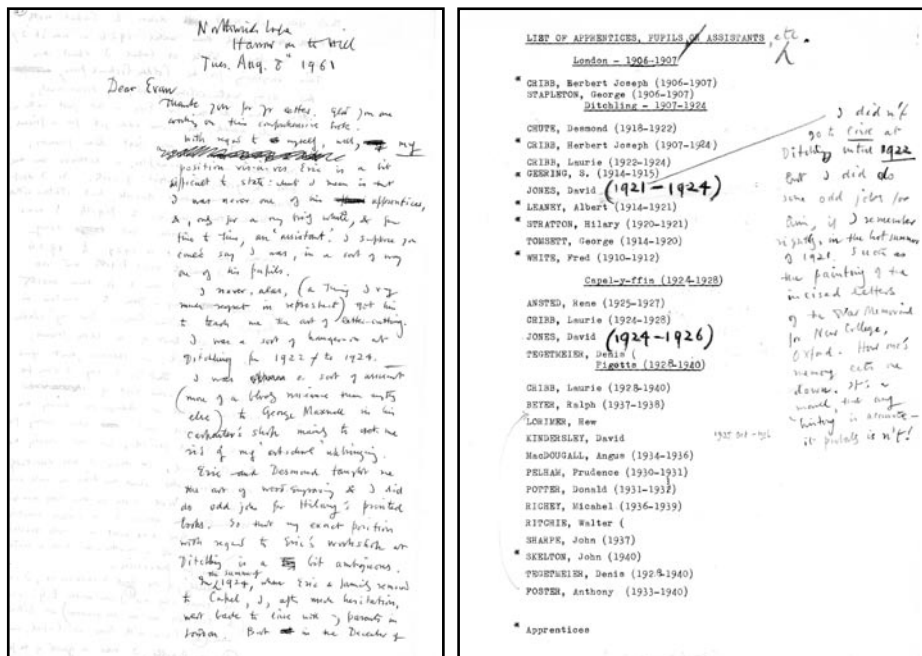 Northwick Lodge
Harrow on the Hill
Tues. Aug. 8th 1961
Dear Evan
Thank you for yr letter. Glad you are
working on this comprehensive book.
With regard to myself, well, my
position vis-à-vis Eric is a bit
difficult to state: what I mean is that
I was never one of his apprentices,
&, only for a very brief while, & from
time to time, an 'assistant'. I suppose you
could say I was, in a sort of way
one of his pupils.
I never, alas, (a thing I v.
much regret in retrospect) got him
to teach me the art of letter-cutting.
I was a sort of hanger-on at
Ditchling fr 1922 to 1924.
I was a sort of assistant
(more of a bloody nuisance than anything
else) to George Maxwell in his
carpenter's shop mainly to
rid of my 'art-school' upbringing.
Eric and Desmond taught me
the art of wood-engraving & I did
do odd jobs for Hilary's printed
books. So that my exact position
with regard to Eric's workshop at
Ditchling is a bit ambiguous.
In the summer 1924, when Eric & family removed
to Capel, I, after much hesitation,
went back to live with my parents in
London. But in the December of
LIST OF APPRENTICES, PUPILS OR ASSISTANTS, etc.
London - 1906-1907
* CRIBB, Herbert Joseph (1906-1907)
STAPLETON, George (1906-1907)
Ditchling - 1907-1924
CHUTE, Desmond (1918-1922)
* CRIBB, Herbert Joseph (1907-1924)
CRIBB, Laurie (1922-1924)
* GEERING, S. (1914-1915)
JONES, David (1921-1924)
* LEANEY, Albert (1914-1921)
* STRATTON, Hilary (1920-1921)
TOMSETT, George (1914-1920)
* WHITE, Fred (1910-1912)
Capel-y-ffin (1924-1928)
ANSTED, Rene (1925-1927)
CRIBB, Laurie (1924-1928)
JONES, David (1924-1926)
TEGETMEIER, Denis (
Pigotts (1928-1940)
CRIBB, Laurie (1928-1940)
BEYER, Ralph (1937-1938)
LORIMER, Hew
KINDERSLEY, David
MacDOUGALL, Angus (1934-1936)
PELHAM, Prudence (1930-1931)
POTTER, Donald (1931-1932)
RICHEY, Micahel (1936-1939)
RITCHIE, Walter (
SHARPE, John (1937)
* SKELTON, John (1940)
TEGETMEIER, Denis (1928-1940)
FOSTER, Anthony (1933-1940)
* Apprentices
I did n't
go to live at
Ditchling until 1922
But I did do
some odd jobs for
him, if I remember
rightly, in the hot summer
of 1921. Such as
the painting of the
incised letters
of the War Memorial
for New College,
Oxford. How one's
memory lets one
down. It's a
marvel, that any
'history' is accurate –
it probably is n't!